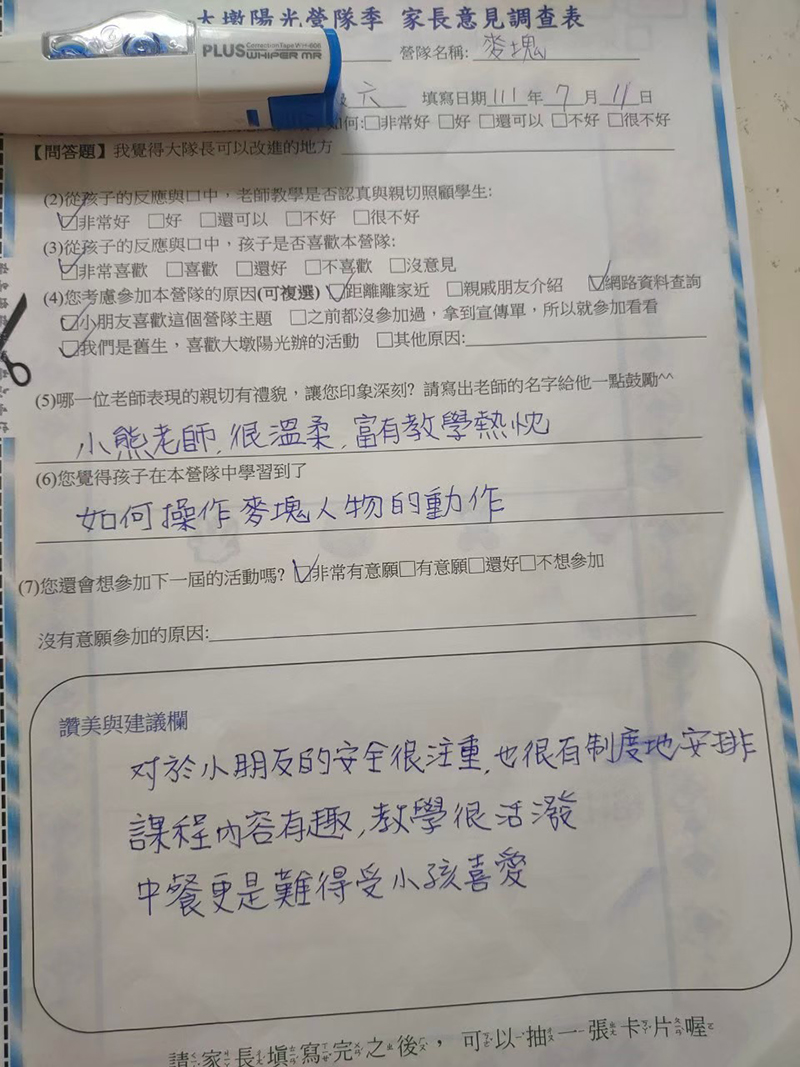 大墩陽光營隊季 家長意見調查表
PLUS Correction Tape WH-606
WHIPER MR
營隊名稱: 麥塊
六 填寫日期111年7月11日
如何:□非常好 □好 □還可以 □不好 □很不好
【問答題】我覺得大隊長可以改進的地方
(2)從孩子的反應與口中，老師教學是否認真與親切照顧學生:
☑非常好 □好 □還可以 □不好 □很不好
(3)從孩子的反應與口中，孩子是否喜歡本營隊:
☑非常喜歡 □喜歡 □還好 □不喜歡 □沒意見
(4)您考慮參加本營隊的原因(可複選) ☑距離離家近 □親戚朋友介紹 ☑網路資料查詢
☑小朋友喜歡這個營隊主題 □之前都沒參加過，拿到宣傳單，所以就參加看看
☑我們是舊生，喜歡大墩陽光辦的活動 □其他原因:
(5)哪一位老師表現的親切有禮貌，讓您印象深刻? 請寫出老師的名字給他一點鼓勵^^
小熊老師,很溫柔,富有教學熱忱
(6)您覺得孩子在本營隊中學習到了
如何操作麥塊人物的動作
(7)您還會想參加下一屆的活動嗎? ☑非常有意願□有意願□還好□不想參加
沒有意願參加的原因:
讚美與建議欄
对於小朋友的安全很注重,也很有制度地安排
課程內容有趣,教學很活潑
中餐更是難得受小孩喜愛
請家長填寫完之後，可以抽一張卡片喔